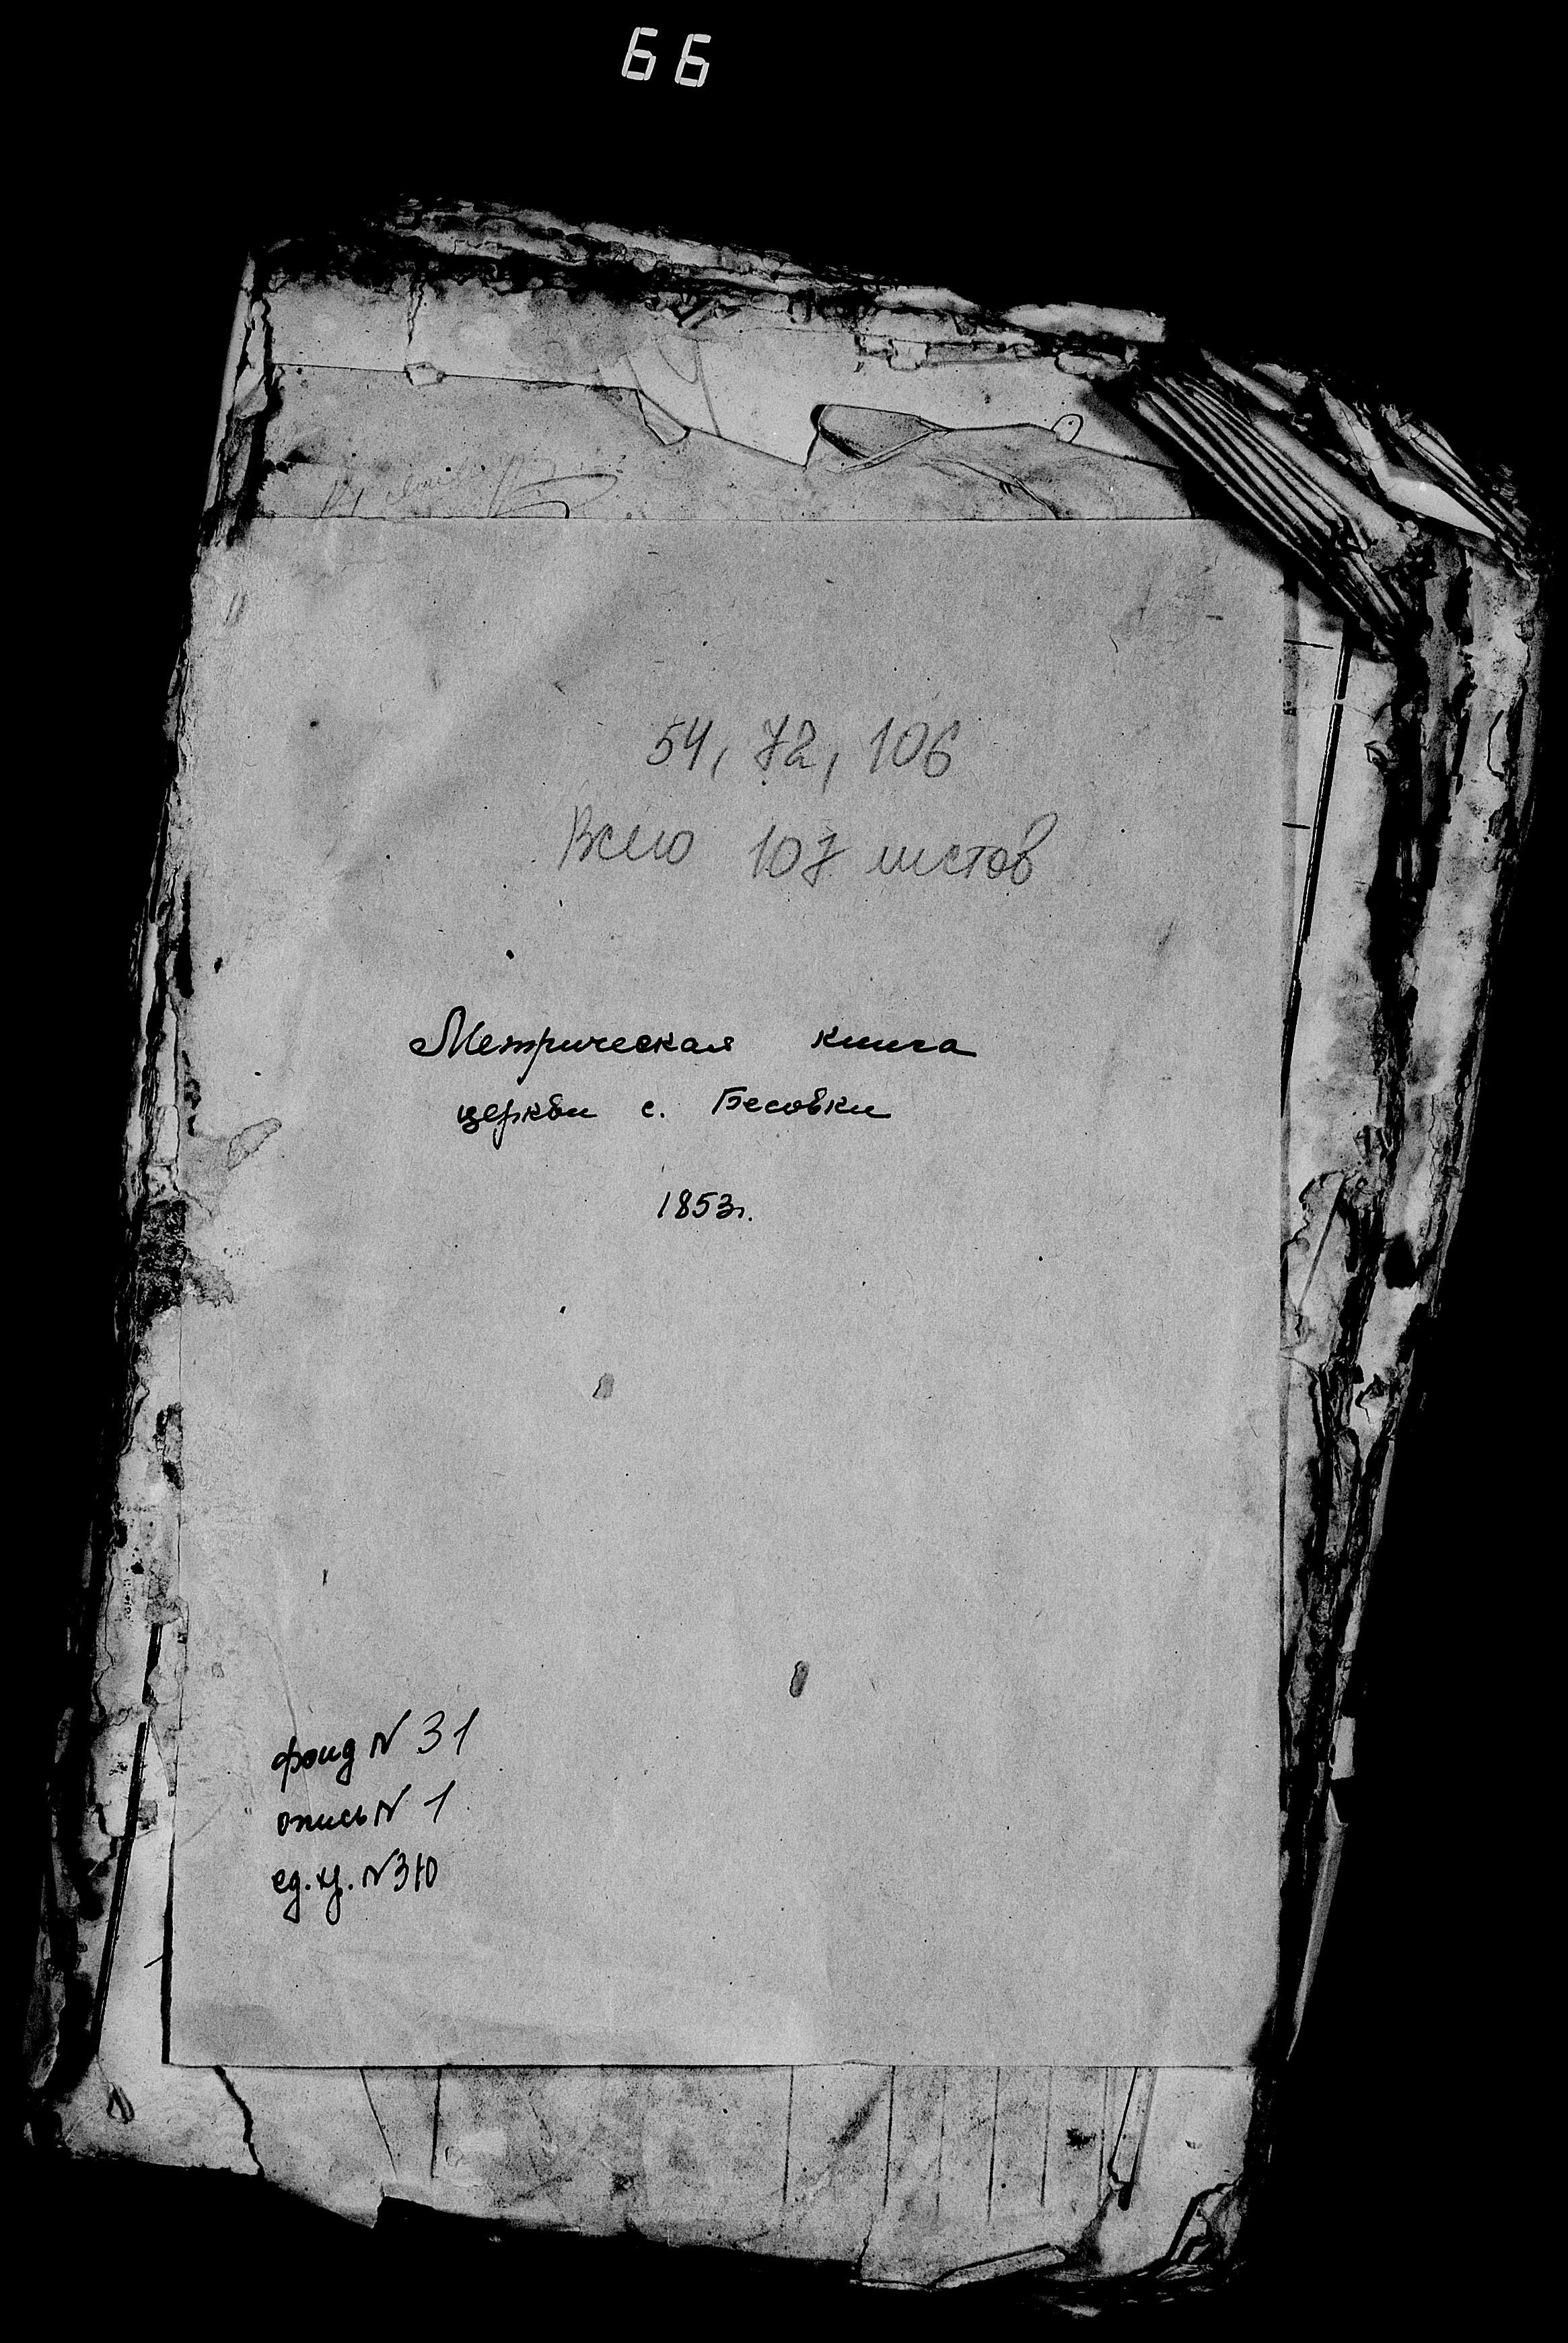 66
54, 72, 106
Всего 107 листов
Метрическая книга
церкви с. Бесовки
1853г.
фонд N 31
опись N 1
ед. х. N 310